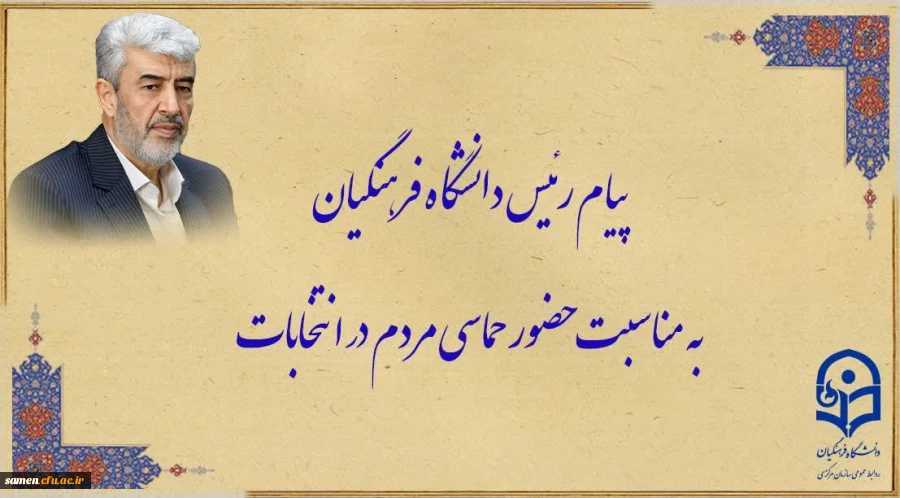 پیام رئیس دانشگاه فرهنگیان
به مناسبت حضور حماسی مردم در انتخابات
دانشگاه فرهنگیان
روابط عمومی سازمان مرکزی
samen.cfu.ac.ir